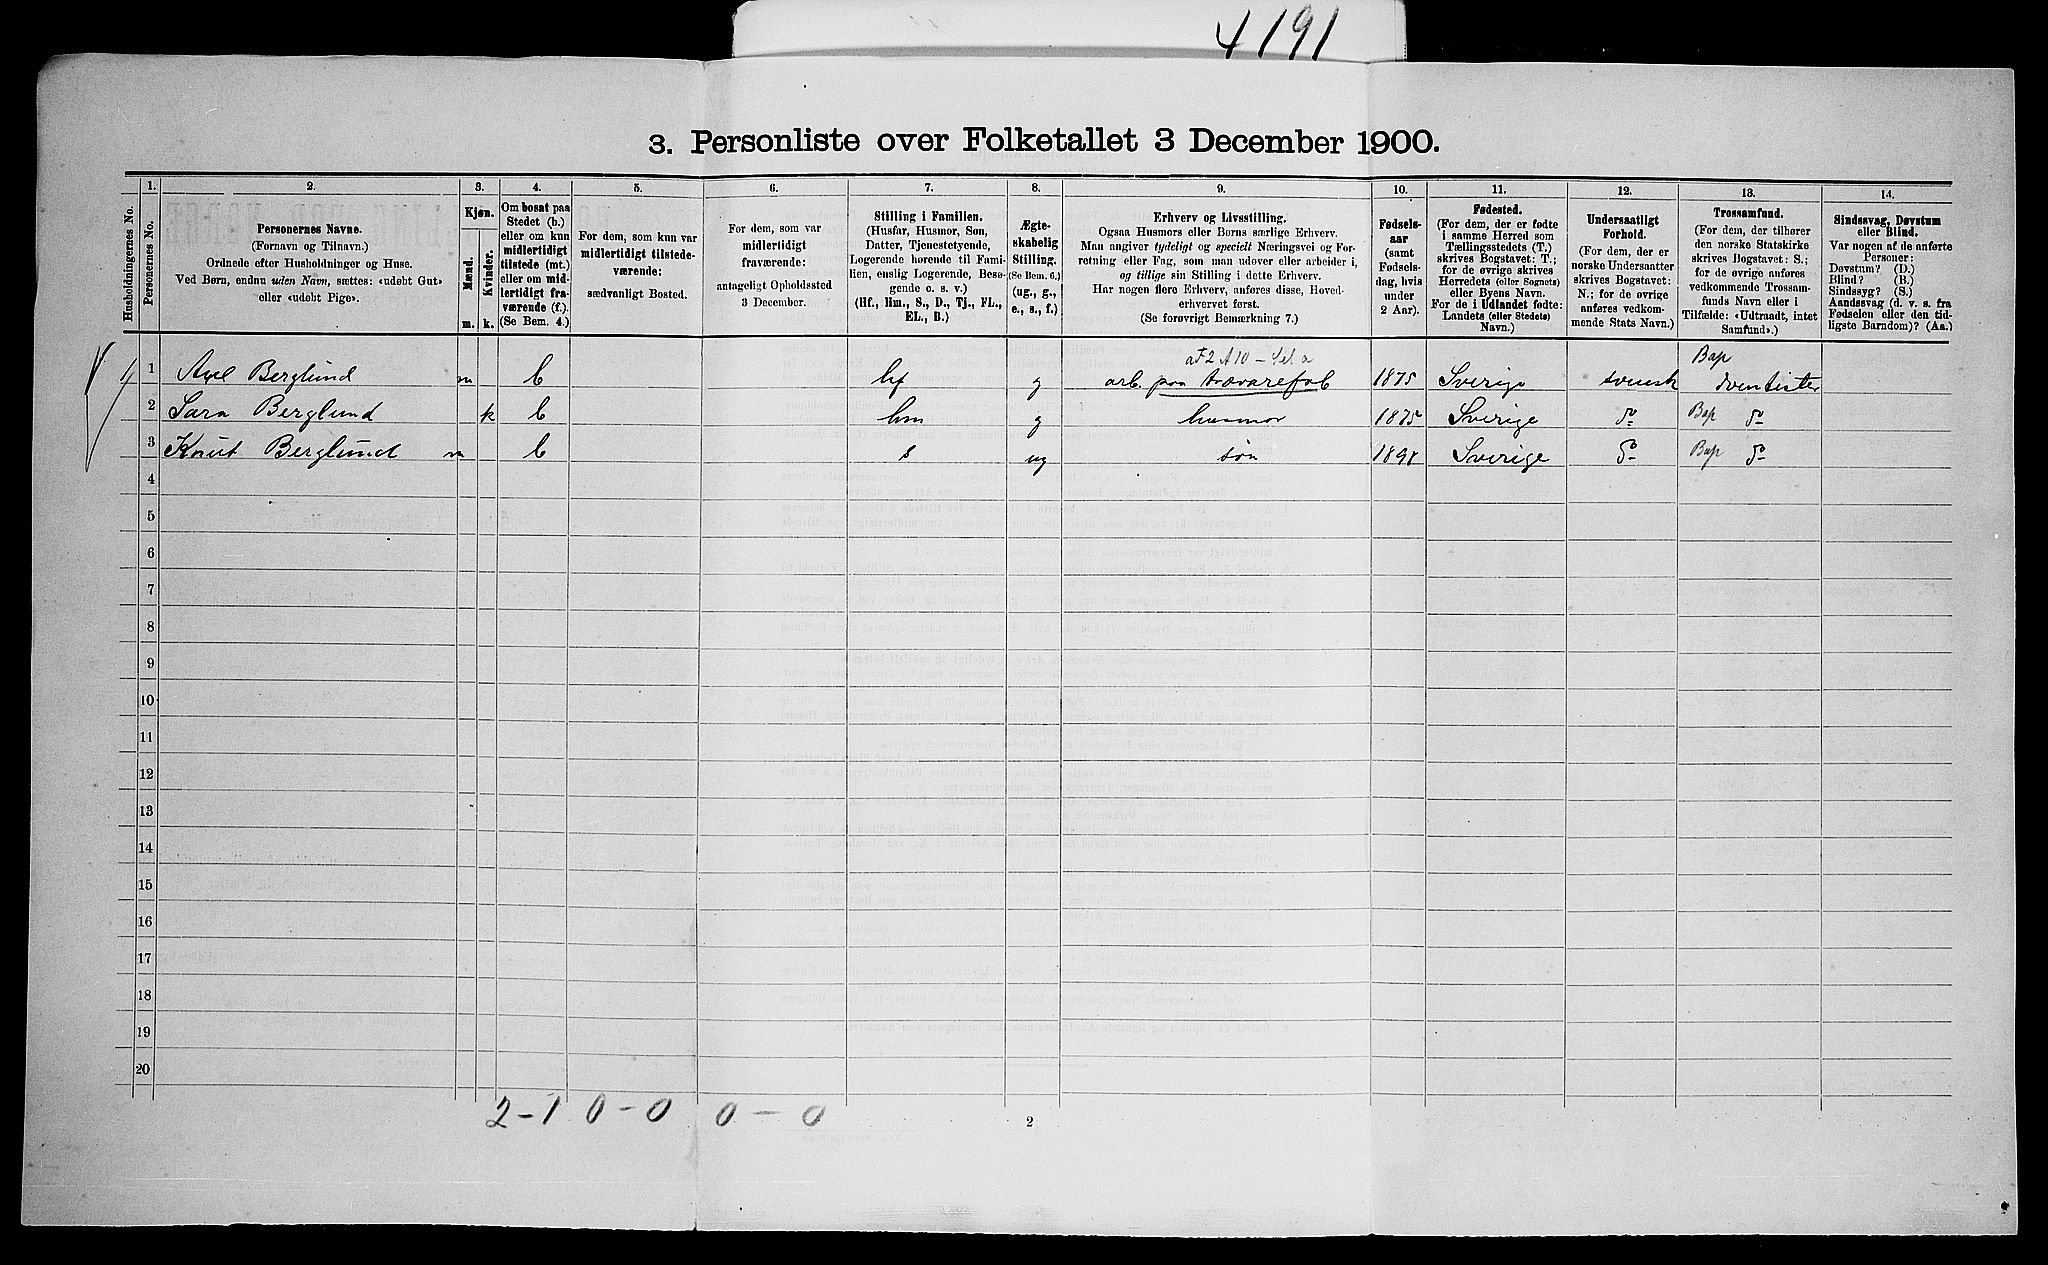 4191
3. Personliste over Folketallet 3 December 1900.
Husholdningernes No.
1.
Personernes No.
2.
Personernes Navne.
(Fornavn og Tilnavn.)
Ordnede efter Husholdninger og Huse.
Ved Børn, endnu uden Navn, sættes: «udøbt Gut»
eller «udøbt Pige».
3.
Kjøn.
Mænd.
Kvinder.
m. k.
4.
Om bosat paa
Stedet (b.)
eller om kun
midlertidigt
tilstede (mt.)
eller om mid-
lertidigt fra-
værende (f.).
(Se Bem. 4.)
5.
For dem, som kun var
midlertidigt tilstede-
værende:
sædvanligt Bosted.
6.
For dem, som var
midlertidigt
fraværende:
antageligt Opholdssted
3 December.
7.
Stilling i Familien.
(Husfar, Husmor, Søn,
Datter, Tjenestetyende,
Logerende hørende til Fami-
lien, enslig Logerende, Besø-
gende o. s. v.)
(Hf., Hm., S., D., Tj., FL.,
EL., B.)
8.
Ægte-
skabelig
Stilling.
(Se Bem. 6.)
(ug., g.,
e., s., f.)
9.
Erhverv og Livsstilling.
Ogsaa Husmors eller Børns særlige Erhverv.
Man angiver tydeligt og specielt Næringsvei og For-
retning eller Fag, som man udover eller arbeider i,
og tillige sin Stilling i dette Erhverv.
Har nogen flere Erhverv, anføres disse, Hoved-
erhvervet først.
(Se forøvrigt Bemærkning 7.)
10.
Fødsels-
aar
(samt
Fødsels-
dag, hvis
under
2 Aar).
11.
Fødested.
(For dem, der er fødte
i samme Herred som
Tællingsstedets (T.)
skrives Bogstavet: T.;
for de øvrige skrives
Herredets (eller Sognets)
eller Byens Navn.
For de i Udlandet fødte:
Landets (eller Stedets)
Navn.)
12.
Undersaatligt
Forhold.
(For dem, der er
norske Undersaatter
skrives Bogstavet:
N.; for de øvrige
anføres vedkom-
mende Stats Navn.)
13.
Trossamfund.
(For dem, der tilhører
den norske Statskirke
skrives Bogstavet: S.;
for de øvrige anføres
vedkommende Trossam-
funds Navn eller i
Tilfælde: «Udtraadt, intet
Samfund».)
14.
Sindssvag, Døvstum
eller Blind.
Var nogen af de anførte
Personer:
Døvstum? (D.)
Blind? (B.)
Sindssyg? (S.)
Aandssvag (d. v. s. fra
Fødselen eller den tid-
ligste Barndom)? (Aa.)
Bap
1 Axel Berglund m b hf g arb. paa trævarefab 1875 Sverige svensk
2 Sara Berglund k b hm g husmor 1875 Sverige do Bap do
3 Knut Berglund m b s ug søn 1898 Sverige do Bap do
4
5
6
7
8
9
10
11
12
13
14
15
16
17
18
19
20
2-1 0-0 0-0
2